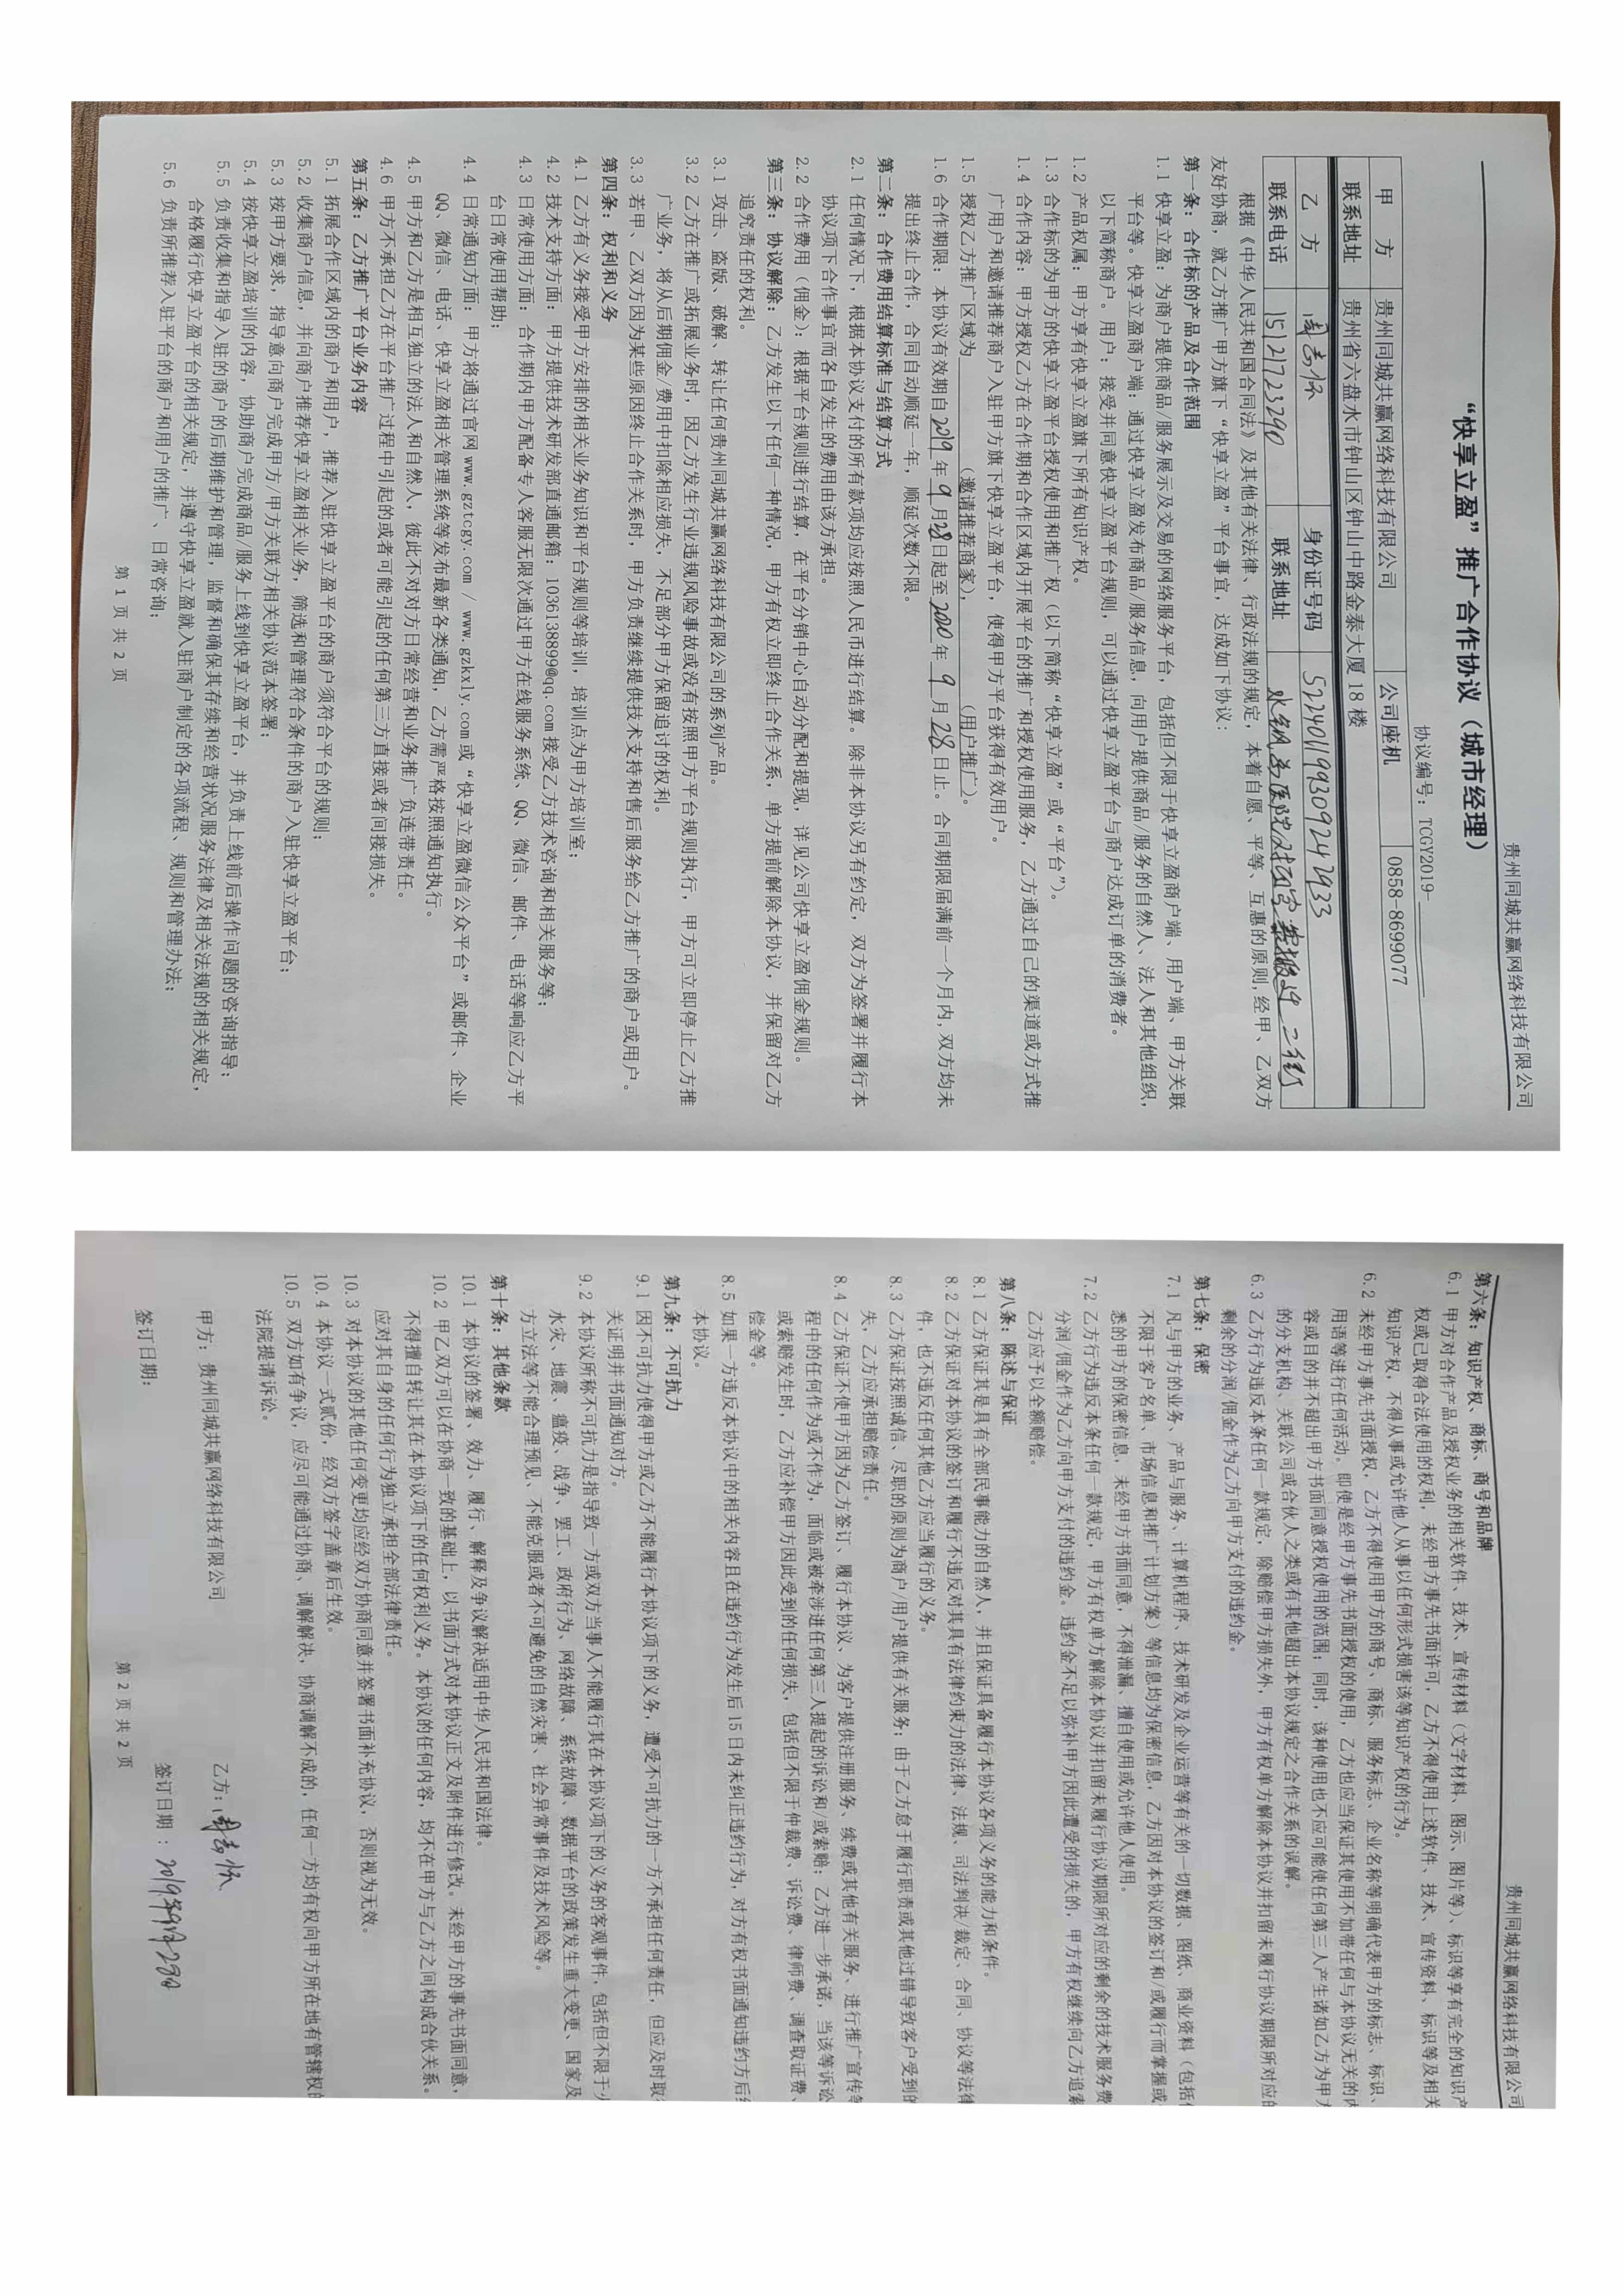 贵州同城共赢网络科技有限公司
“快享立盈”推广合作协议（城市经理）
协议编号：TCGY2019-
甲 方 贵州同城共赢网络科技有限公司 公司座机 0858-8699077
联系地址 贵州省六盘水市钟山区钟山中路金泰大厦18楼
乙 方 身份证号码 522401199309247933
联系电话 15121723290 联系地址 二街
根据《中华人民共和国合同法》及其他有关法律、行政法规的规定，本着自愿、平等、互惠的原则,经甲、乙双方
友好协商，就乙方推广甲方旗下“快享立盈”平台事宜，达成如下协议：
第一条：合作标的产品及合作范围
1.1 快享立盈：为商户提供商品/服务展示及交易的网络服务平台，包括但不限于快享立盈商户端、用户端、甲方关联
平台等。快享立盈商户端：通过快享立盈发布商品/服务信息，向用户提供商品/服务的自然人、法人和其他组织，
以下简称商户。用户：接受并同意快享立盈平台规则，可以通过快享立盈平台与商户达成订单的消费者。
1.2 产品权属：甲方享有快享立盈旗下所有知识产权。
1.3 合作标的为甲方的快享立盈平台授权使用和推广权（以下简称“快享立盈”或“平台”）。
1.4 合作内容：甲方授权乙方在合作期和合作区域内开展平台的推广和授权使用服务，乙方通过自己的渠道或方式推
广用户和邀请推荐商户入驻甲方旗下快享立盈平台，使得甲方平台获得有效用户。
1.5 授权乙方推广区域为 （邀请推荐商家）， （用户推广）。
1.6 合作期限：本协议有效期自2019年9月28日起至2020年9月28日止。合同期限届满前一个月内,双方均未
提出终止合作，合同自动顺延一年，顺延次数不限。
第二条：合作费用结算标准与结算方式
2.1 任何情况下，根据本协议支付的所有款项均应按照人民币进行结算。除非本协议另有约定，双方为签署并履行本
协议项下合作事宜而各自发生的费用由该方承担。
2.2 合作费用（佣金）：根据平台规则进行结算，在平台分销中心自动分配和提现，详见公司快享立盈佣金规则。
第三条：协议解除：乙方发生以下任何一种情况，甲方有权立即终止合作关系，单方提前解除本协议，并保留对乙方
追究责任的权利。
3.1 攻击、盗版、破解、转让任何贵州同城共赢网络科技有限公司的系列产品。
3.2 乙方在推广或拓展业务时，因乙方发生行业违规风险事故或没有按照甲方平台规则执行，甲方可立即停止乙方推
广业务，将从后期佣金/费用中扣除相应损失，不足部分甲方保留追讨的权利。
3.3 若甲、乙双方因为某些原因终止合作关系时，甲方负责继续提供技术支持和售后服务给乙方推广的商户或用户。
第四条：权利和义务
4.1 乙方有义务接受甲方安排的相关业务知识和平台规则等培训，培训点为甲方培训室；
4.2 技术支持方面：甲方提供技术研发部直通邮箱：103613889@qq.com接受乙方技术咨询和相关服务等；
4.3 日常使用方面：合作期内甲方配备专人客服无限次通过甲方在线服务系统、QQ、微信、邮件、电话等响应乙方平
台日常使用帮助；
4.4 日常通知方面：甲方将通过官网www.gztcgy.com / www.gzkxly.com或“快享立盈微信公众平台”或邮件、企业
QQ、微信、电话、快享立盈相关管理系统等发布最新各类通知，乙方需严格按照通知执行。
4.5 甲方和乙方是相互独立的法人和自然人，彼此不对对方日常经营和业务推广负连带责任。
4.6 甲方不承担乙方在平台推广过程中引起的或者可能引起的任何第三方直接或者间接损失。
第五条：乙方推广平台业务内容
5.1 拓展合作区域内的商户和用户，推荐入驻快享立盈平台的商户须符合平台的规则；
5.2 收集商户信息，并向商户推荐快享立盈相关业务，筛选和管理符合条件的商户入驻快享立盈平台；
5.3 按甲方要求，指导意向商户完成甲方/甲方关联方相关协议范本签署；
5.4 按快享立盈培训的内容，协助商户完成商品/服务上线到快享立盈平台，并负责上线前后操作问题的咨询指导；
5.5 负责收集和指导入驻的商户的后期维护和管理，监督和确保其存续和经营状况服务法律及相关法规的相关规定，
合格履行快享立盈平台的相关规定，并遵守快享立盈就入驻商户制定的各项流程、规则和管理办法；
5.6 负责所推荐入驻平台的商户和用户的推广、日常咨询；
第 1 页 共 2 页
贵州同城共赢网络科技有限公司
第六条：知识产权、商标、商号和品牌
6.1 甲方对合作产品及授权业务的相关软件、技术、宣传材料（文字材料、图示、图片等）、标识等享有完全的知识产
权或已取得合法使用的权利，未经甲方事先书面许可，乙方不得使用上述软件、技术、宣传资料、标识等及相关
知识产权，不得从事或允许他人从事以任何形式损害该等知识产权的行为。
6.2 未经甲方事先书面授权，乙方不得使用甲方的商号、商标、服务标志、企业名称等明确代表甲方的标志、标识、
用语等进行任何活动。即使是经甲方事先书面授权的使用，乙方也应当保证其使用不加带任何与本协议无关的内
容或目的并不超出甲方书面同意授权使用的范围；同时，该种使用也不应可能使任何第三人产生诸如乙方为甲方
的分支机构、关联公司或合伙人之类或有其他超出本协议规定之合作关系的误解。
6.3 乙方行为违反本条任何一款规定，除赔偿甲方损失外，甲方有权单方解除本协议并扣留未履行协议期限所对应的
剩余的分润/佣金作为乙方向甲方支付的违约金。
第七条：保密
7.1 凡与甲方的业务、产品与服务、计算机程序、技术研发及企业运营等有关的一切数据、图纸、商业资料（包括但
不限于客户名单、市场信息和推广计划方案）等信息均为保密信息，乙方因对本协议的签订和/或履行而掌握或
悉的甲方的保密信息，未经甲方书面同意，不得泄漏、擅自使用或允许他人使用。
7.2 乙方行为违反本条任何一款规定，甲方有权单方解除本协议并扣留未履行协议期限所对应的剩余的技术服务费
分润/佣金作为乙方向甲方支付的违约金。违约金不足以弥补甲方因此遭受的损失的，甲方有权继续向乙方追索
乙方应予以全额赔偿。
第八条：陈述与保证
8.1 乙方保证其是具有全部民事能力的自然人，并且保证具备履行本协议各项义务的能力和条件。
8.2 乙方保证对本协议的签订和履行不违反对其具有法律约束力的法律、法规、司法判决/裁定、合同、协议等法律
件，也不违反任何其他乙方应当履行的义务。
8.3 乙方保证按照诚信、尽职的原则为商户/用户提供有关服务；由于乙方怠于履行职责或其他过错导致客户受到的
失，乙方应承担赔偿责任。
8.4 乙方保证不使甲方因为乙方签订、履行本协议、为客户提供注册服务、续费或其他有关服务、进行推广宣传等
程中的任何作为或不作为，面临或被牵涉进任何第三人提起的诉讼和/或索赔；乙方进一步承诺，当该等诉讼
或索赔发生时，乙方应补偿甲方因此受到的任何损失，包括但不限于仲裁费、诉讼费、律师费、调查取证费、
偿金等。
8.5 如果一方违反本协议中的相关内容且在违约行为发生后15日内未纠正违约行为，对方有权书面通知违约方后终
本协议。
第九条：不可抗力
9.1 因不可抗力使得甲方或乙方不能履行本协议项下的义务，遭受不可抗力的一方不承担任何责任，但应及时取
关证明并书面通知对方。
9.2 本协议所称不可抗力是指导致一方或双方当事人不能履行其在本协议项下的义务的客观事件，包括但不限于火
水灾、地震、瘟疫、战争、罢工、政府行为、网络故障、系统故障、数据平台的政策发生重大变更、国家及
方立法等不能合理预见、不能克服或者不可避免的自然灾害、社会异常事件及技术风险等。
第十条：其他条款
10.1 本协议的签署、效力、履行、解释及争议解决适用中华人民共和国法律。
10.2 甲乙双方可以在协商一致的基础上，以书面方式对本协议正文及附件进行修改。未经甲方的事先书面同意，
不得擅自转让其在本协议项下的任何权利义务。本协议的任何内容，均不在甲方与乙方之间构成合伙关系。
应对其自身的任何行为独立承担全部法律责任。
10.3 对本协议的其他任何变更均应经双方协商同意并签署书面补充协议，否则视为无效。
10.4 本协议一式贰份，经双方签字盖章后生效。
10.5 双方如有争议，应尽可能通过协商、调解解决，协商调解不成的，任何一方均有权向甲方所在地有管辖权的
法院提请诉讼。
甲方：贵州同城共赢网络科技有限公司 乙方：
签订日期： 签订日期：2019年9月28日
第 2 页 共 2 页